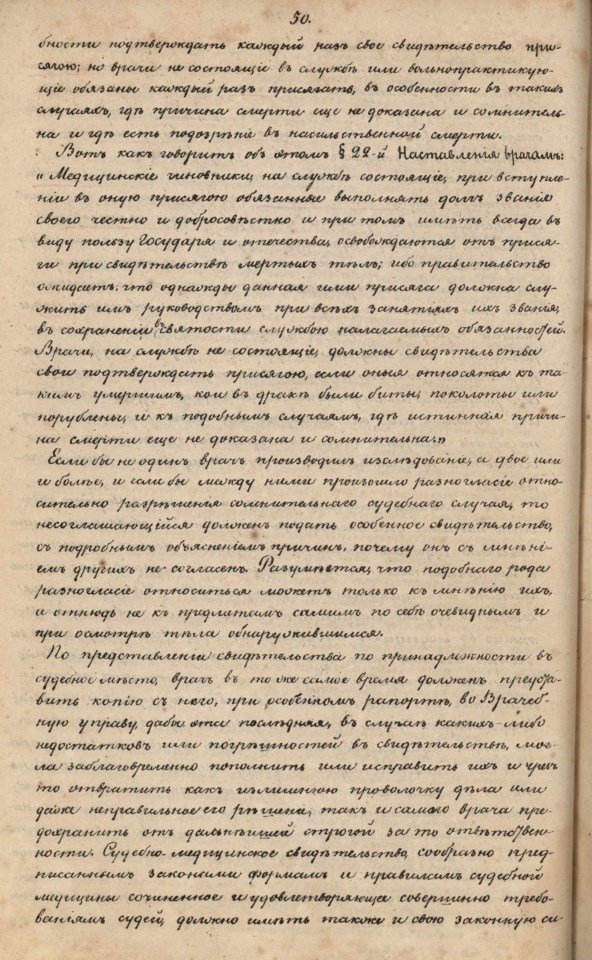 50.
бности подтверждать каждый разъ свое свидѣтельство при-
сягою; но врачи не состоящіе въ службѣ или вольнопрактикую-
щіе обязаны каждый разъ присягать, въ особенности въ такихъ
случаяхъ, гдѣ причина смерти еще не доказана и сомнитель-
на и гдѣ есть подозрѣніе въ насильственной смерти.
Вотъ какъ говоритъ объ этомъ § 22-й Наставленія врачамъ:
"Медицинскіе чиновники, на службѣ состоящіе, при вступле-
ніи въ оную присягою обязанные выполнять долгъ званія
своего честно и добросовѣстно и при томъ имѣть всегда въ
виду пользу Государя и отечества, освобождаются отъ прися-
ги при свидѣтельствѣ мертвыхъ тѣлъ; ибо правительство
ожидаетъ, что однажды данная ими присяга должна слу-
жить имъ руководствомъ при всѣхъ занятіяхъ ихъ званія,
въ сохраненіи въ святости службою налагаемыхъ обязанностей.
Врачи, на службѣ не состоящіе, должны свидѣтельства
свои подтверждать присягою, если оныя относятся къ та-
кимъ умершимъ, кои въ дракѣ были биты, поколоты или
порублены, и къ подобнымъ случаямъ, гдѣ истинная причи-
на смерти еще не доказана и сомнительна."
Если бы не одинъ врачъ производилъ изслѣдованіе, а двое или
и болѣе, и если бы между ними произошло разногласіе отно-
сительно разрѣшенія сомнительнаго судебнаго случая, то
несоглашающійся долженъ подать особенное свидѣтельство,
съ подробнымъ объясненіемъ причинъ, почему онъ съ мнѣні-
емъ другихъ не согласенъ. Разумѣется, что подобнаго рода
разногласіе относиться можетъ только къ мнѣнію ихъ,
а отнюдь не къ предметамъ самимъ по себѣ очевиднымъ и
при осмотрѣ тѣла обнаружившимся.
По представленіи свидѣтельства по принадлежности въ
судебное мѣсто, врачъ въ то же самое время долженъ предста-
вить копію съ него, при особенномъ рапортѣ, во Врачеб-
ную управу, дабы эта послѣдняя, въ случаѣ какихъ-либо
недостатковъ или погрѣшностей въ свидѣтельствѣ, мог-
ла заблаговременно пополнить или исправить ихъ и чрезъ
то отвратить какъ излишнюю проволочку дѣла или
даже неправильное его рѣшеніе, такъ и самого врача пре-
дохранить отъ дальнѣйшей строгой за то отвѣтствен-
ности. Судебно-медицинское свидѣтельство, сообразно пред-
писаннымъ законами формамъ и правиламъ судебной
медицины сочиненное и удовлетворяющее совершенно требо-
ваніямъ судей, должно имѣть также и свою законную си-